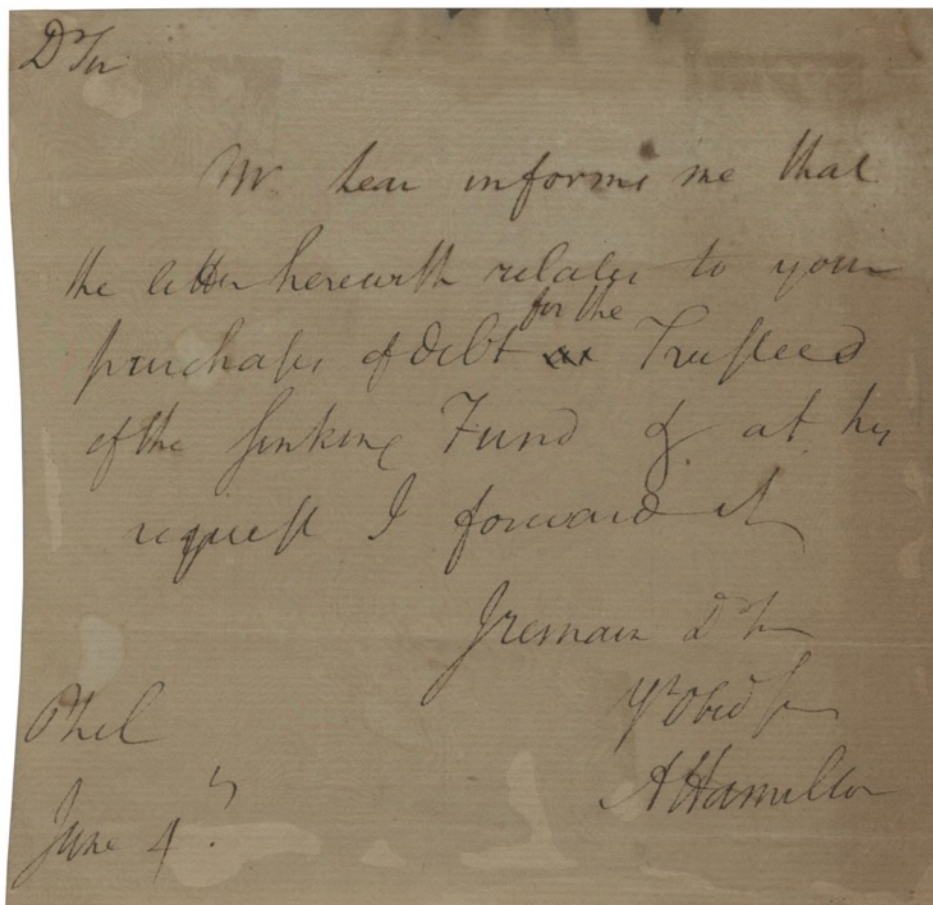 Dr Sir
Mr. Lear informs me that
the letter herewith relates to your
for the
purchases of debt Trustees
of the sinking Fund & at his
request I forward it
I remain Dr Sir
Yr Obed s
A Hamilton
Phil
June 4.